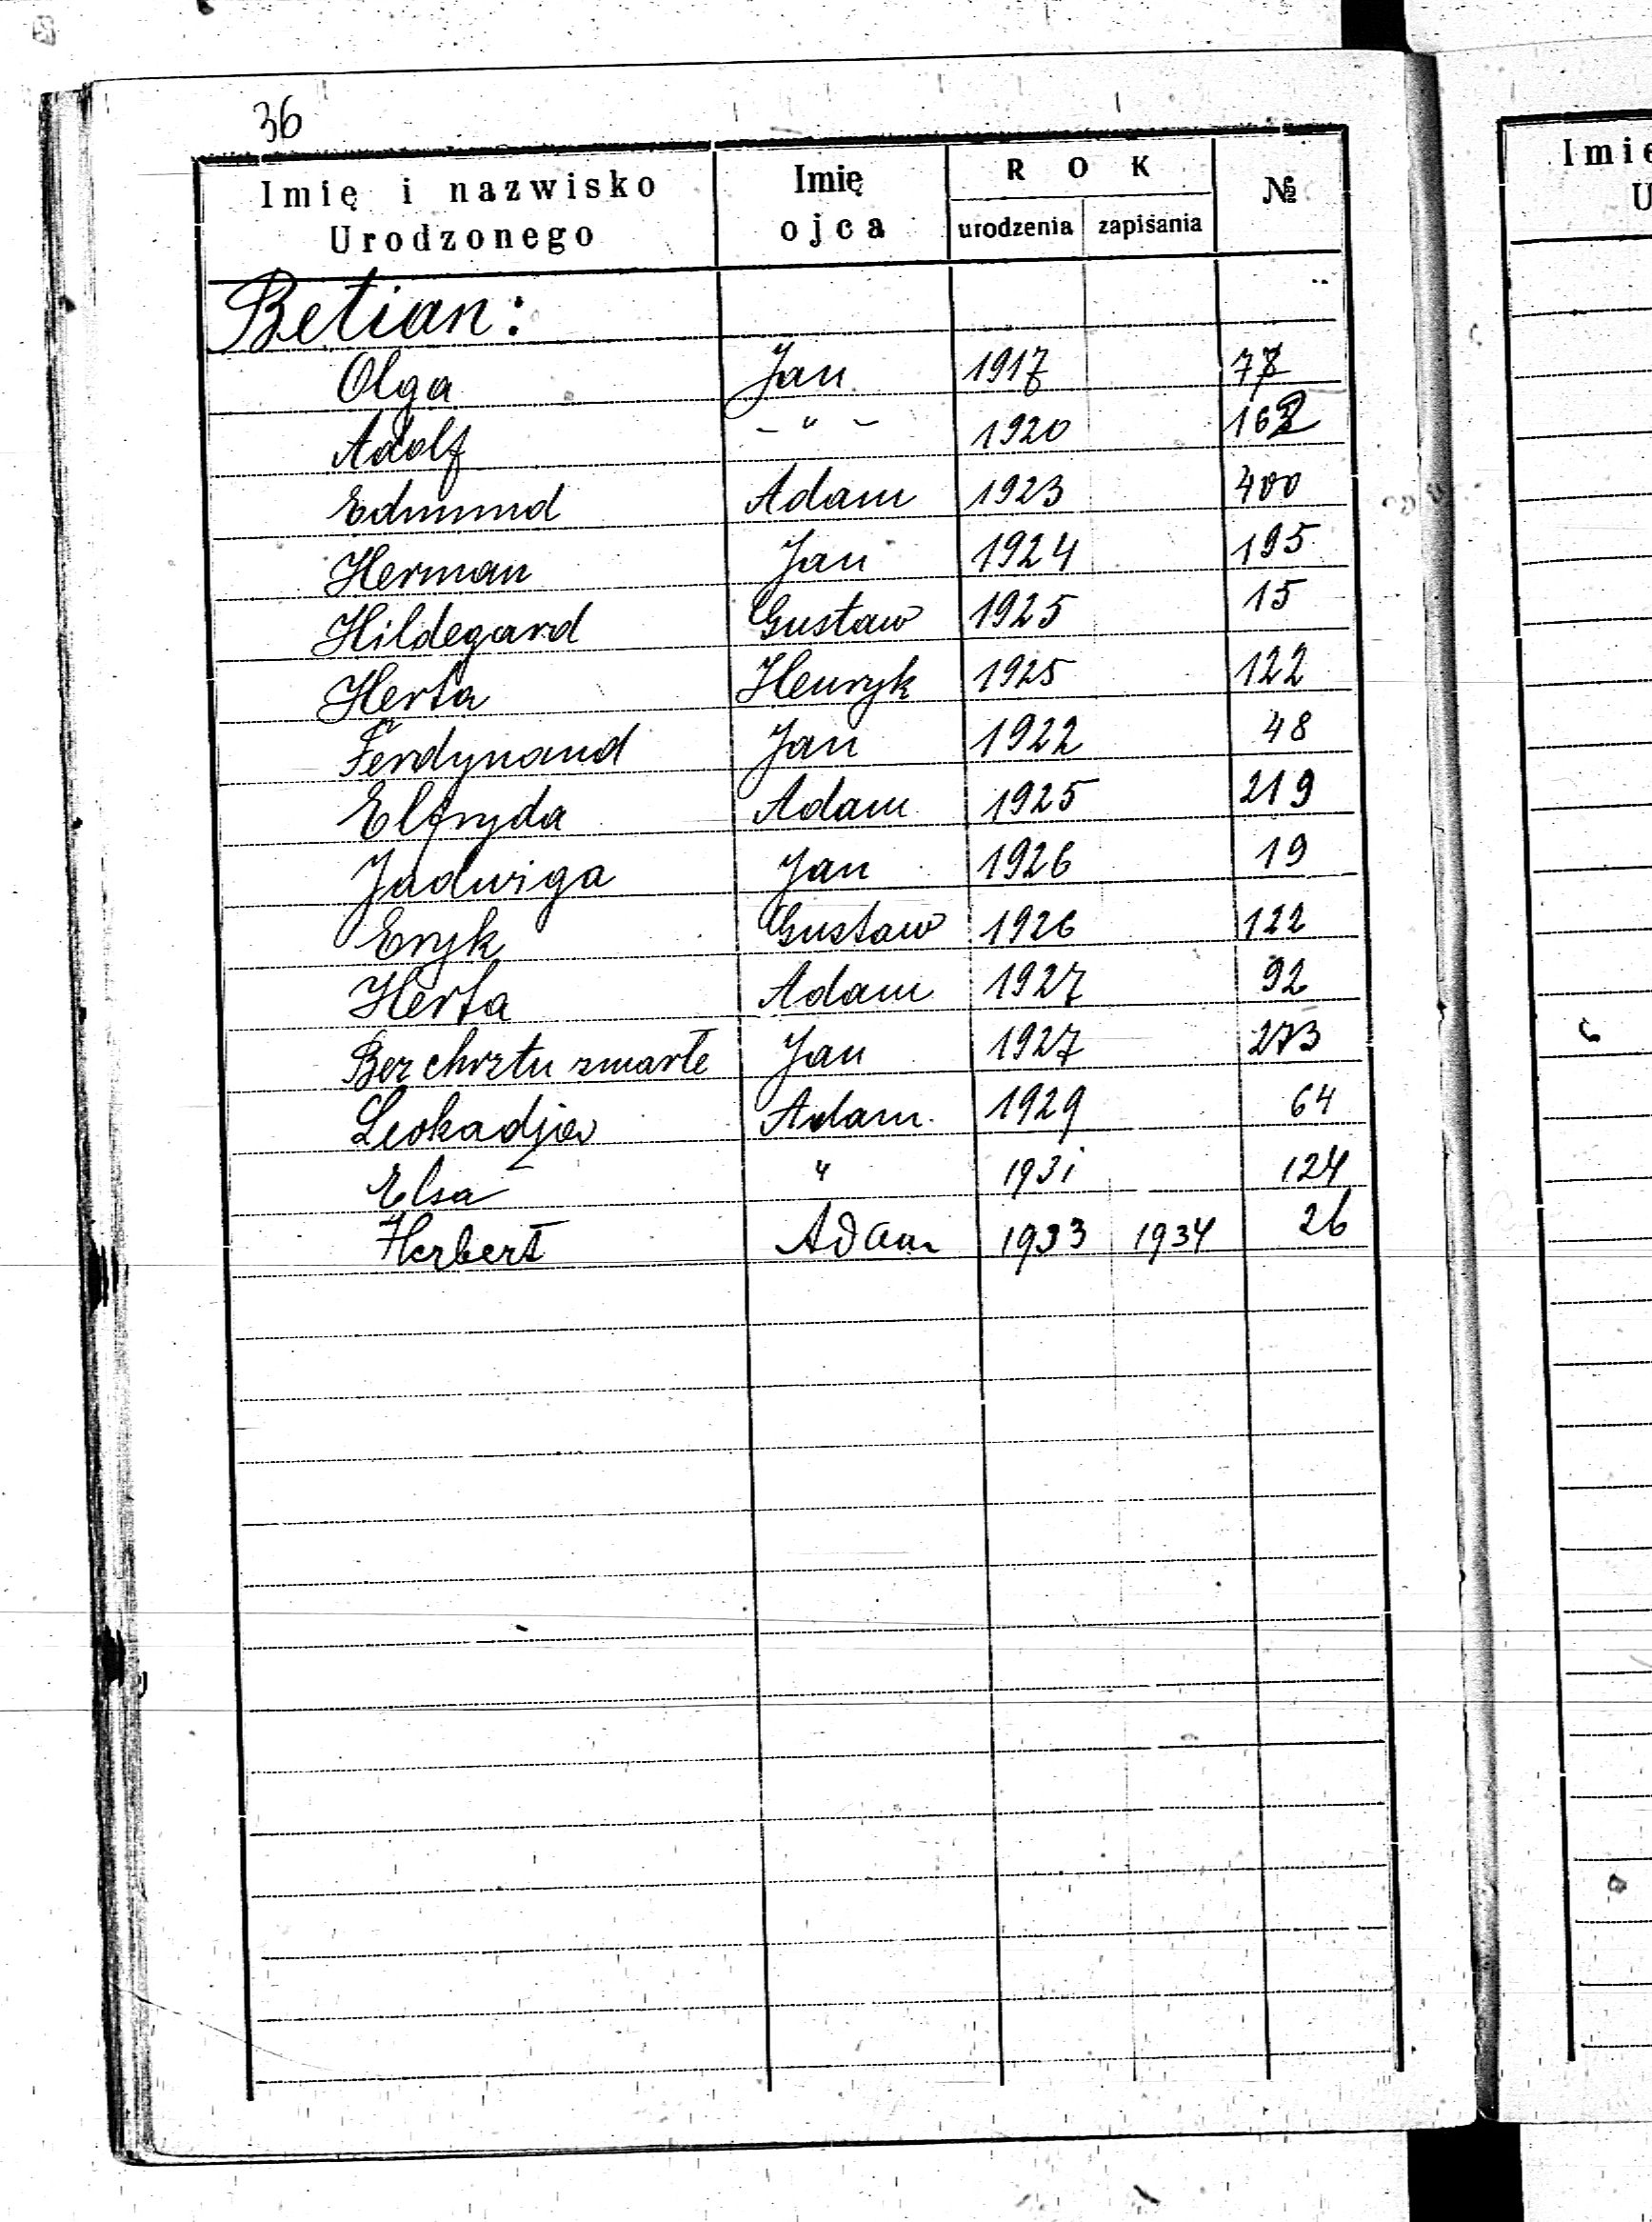 36
Imię i nazwisko Urodzonego Imię ojca ROK urodzenia zapisania №
Betian:
Olga Jan 1917 77
Adolf - " - 1920 162
Edmund Adam 1923 400
Herman Jan 1924 195
Hildegard Gustaw 1925 15
Herta Henryk 1925 122
Ferdynand Jan 1922 48
Elfryda Adam 1925 219
Jadwiga Jan 1926 19
Eryk Gustaw 1926 122
Herta Adam 1927 92
Bez chrztu zmarłe Jan 1927 273
Leokadja Adam 1929 64
Elsa " 1931 124
Herbert Adam 1933 1934 26
Imię
U